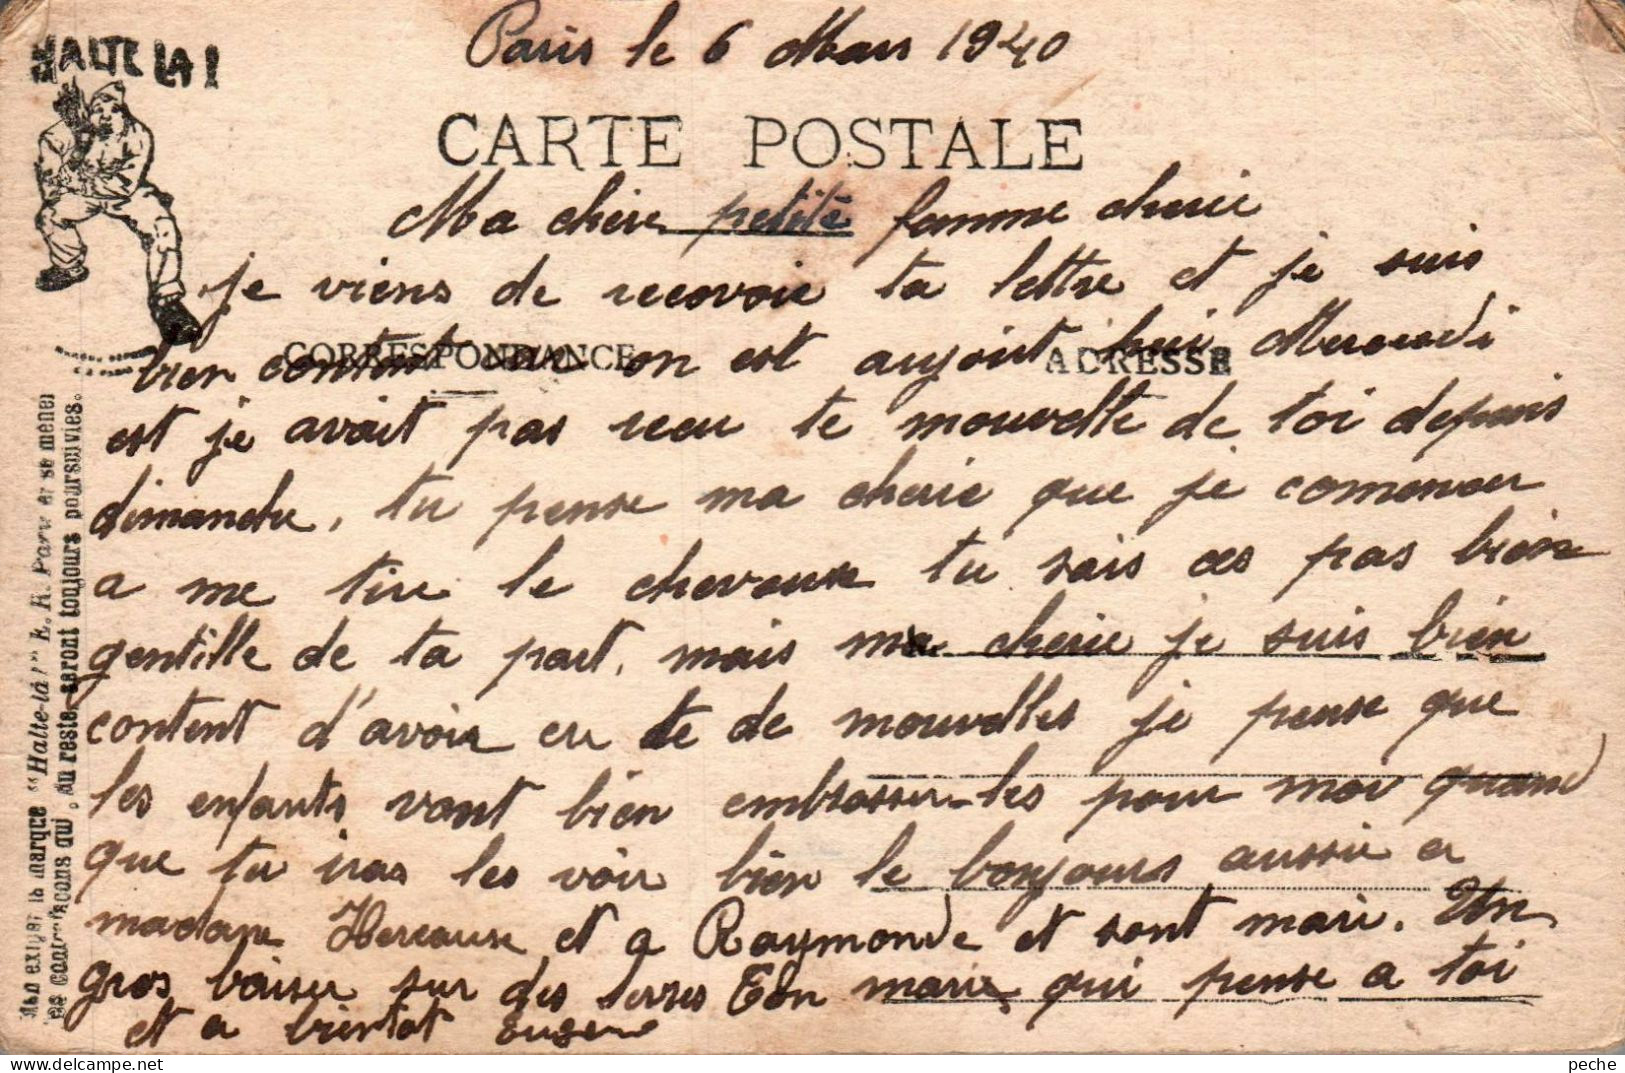 Paris le 6 Mars 1940
HALTE LA !
CARTE POSTALE
Ma chère petite famme cherie
je viens de recevoir ta lettre et je suis
CORRESPONDANCE
ADRESSE
bien content car on est aujourt hui Mercredi
est je avait pas recu te mouvelle de toi depuis
dimanche, tu pense ma cherie que je comencer
a me tire le cheveux tu sais ces pas bien
gentille de ta part, mais ma cherie je suis bien
content d'avoir eu te de mouvelles je pense que
les enfants vont bien embrasser-les pour moi quand
que tu iras les voir bien le bonjours aussie a
madame et a Raymonde et sont mari. Un
gros baiser sur des levres Ton marie qui pense a toi
et a bientot Eugene
exiger la marque "Halte-là!" E. R. Paris et se méfier
des contrefaçons qui, du reste seront toujours poursuivies.
peche